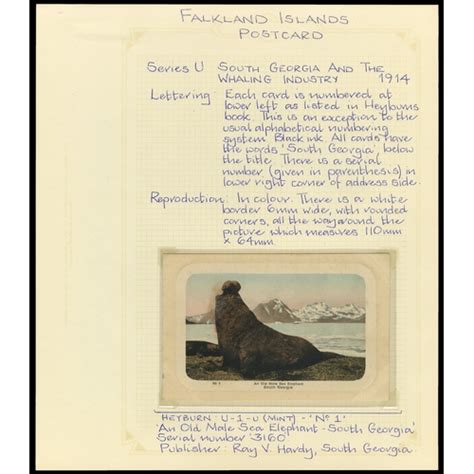 FALKLAND ISLANDS
POSTCARD
SERIES U SOUTH GEORGIA AND THE
WHALING INDUSTRY 1914
Lettering: Each card is numbered at
lower left as listed in Heyburns
book. This is an exception to the
usual alphabetical numbering
system. Black ink. All cards have
the words 'South Georgia', below
the title. There is a serial
number (given in parenthesis) in
lower right corner of address side.
Reproduction: In colour. There is a white
border 6mm wide, with rounded
corners, all the way around the
picture which measures 110mm
x 64mm.
Nº 1 An Old Male Sea Elephant
South Georgia
HEYBURN: U-1-U (MINT) - 'Nº 1'
'An Old Male Sea Elephant - South Georgia'
Serial number '3160'
Publisher: Ray V. Hardy, South Georgia